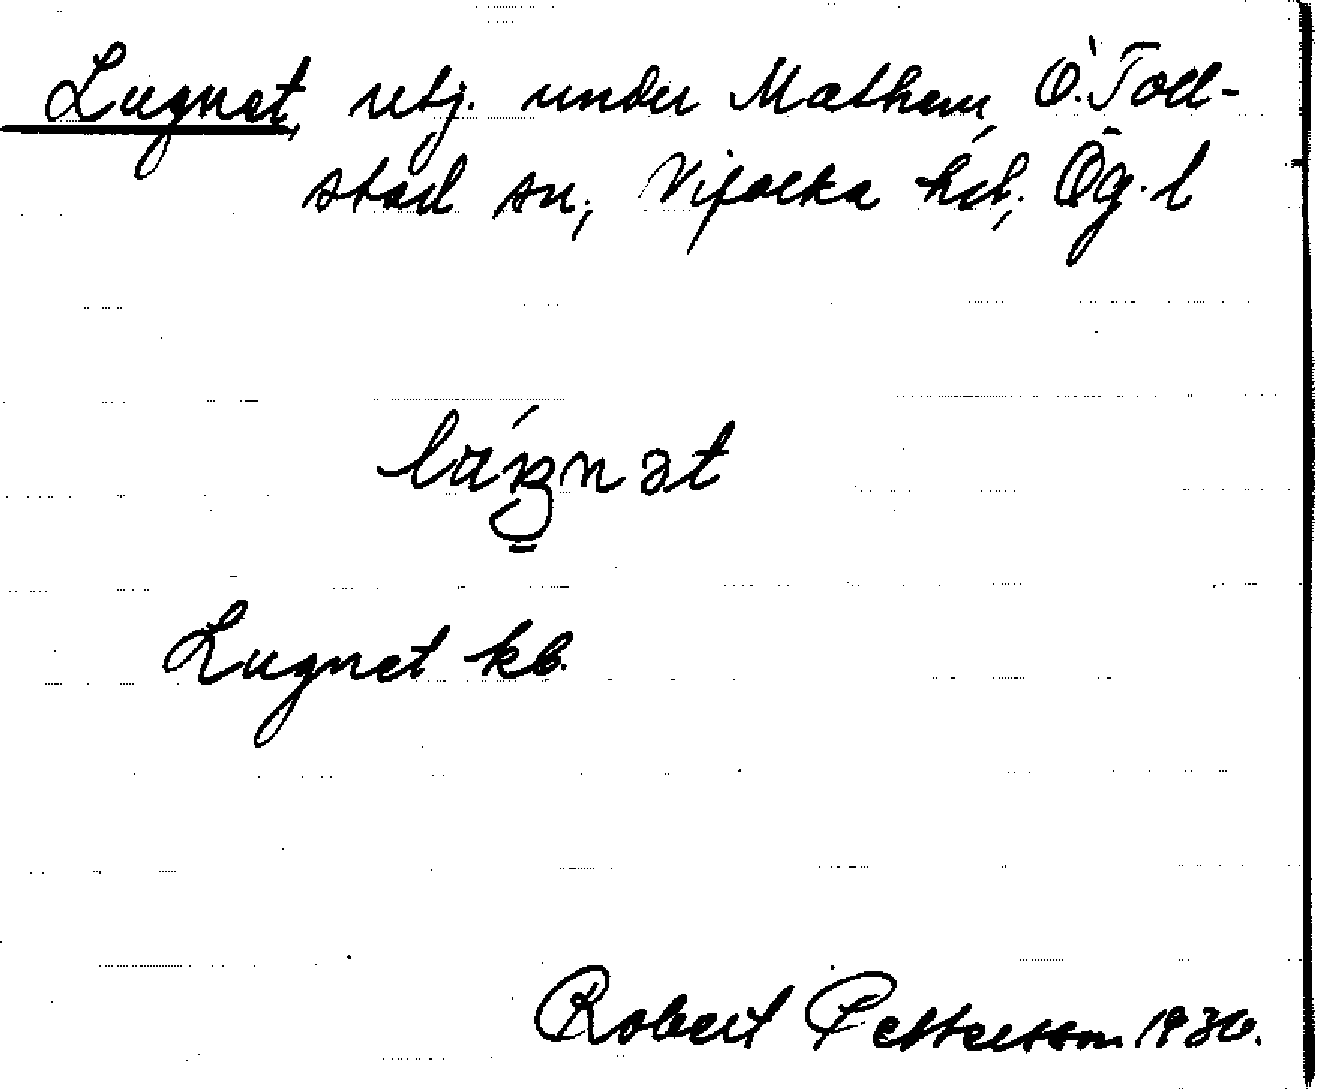 Lugnet, utj. under Mathem, Ö. Toll-
stad sn, Vifolka hd, Ög. l
Lugnet kb.
Robert Pettersson 1930.